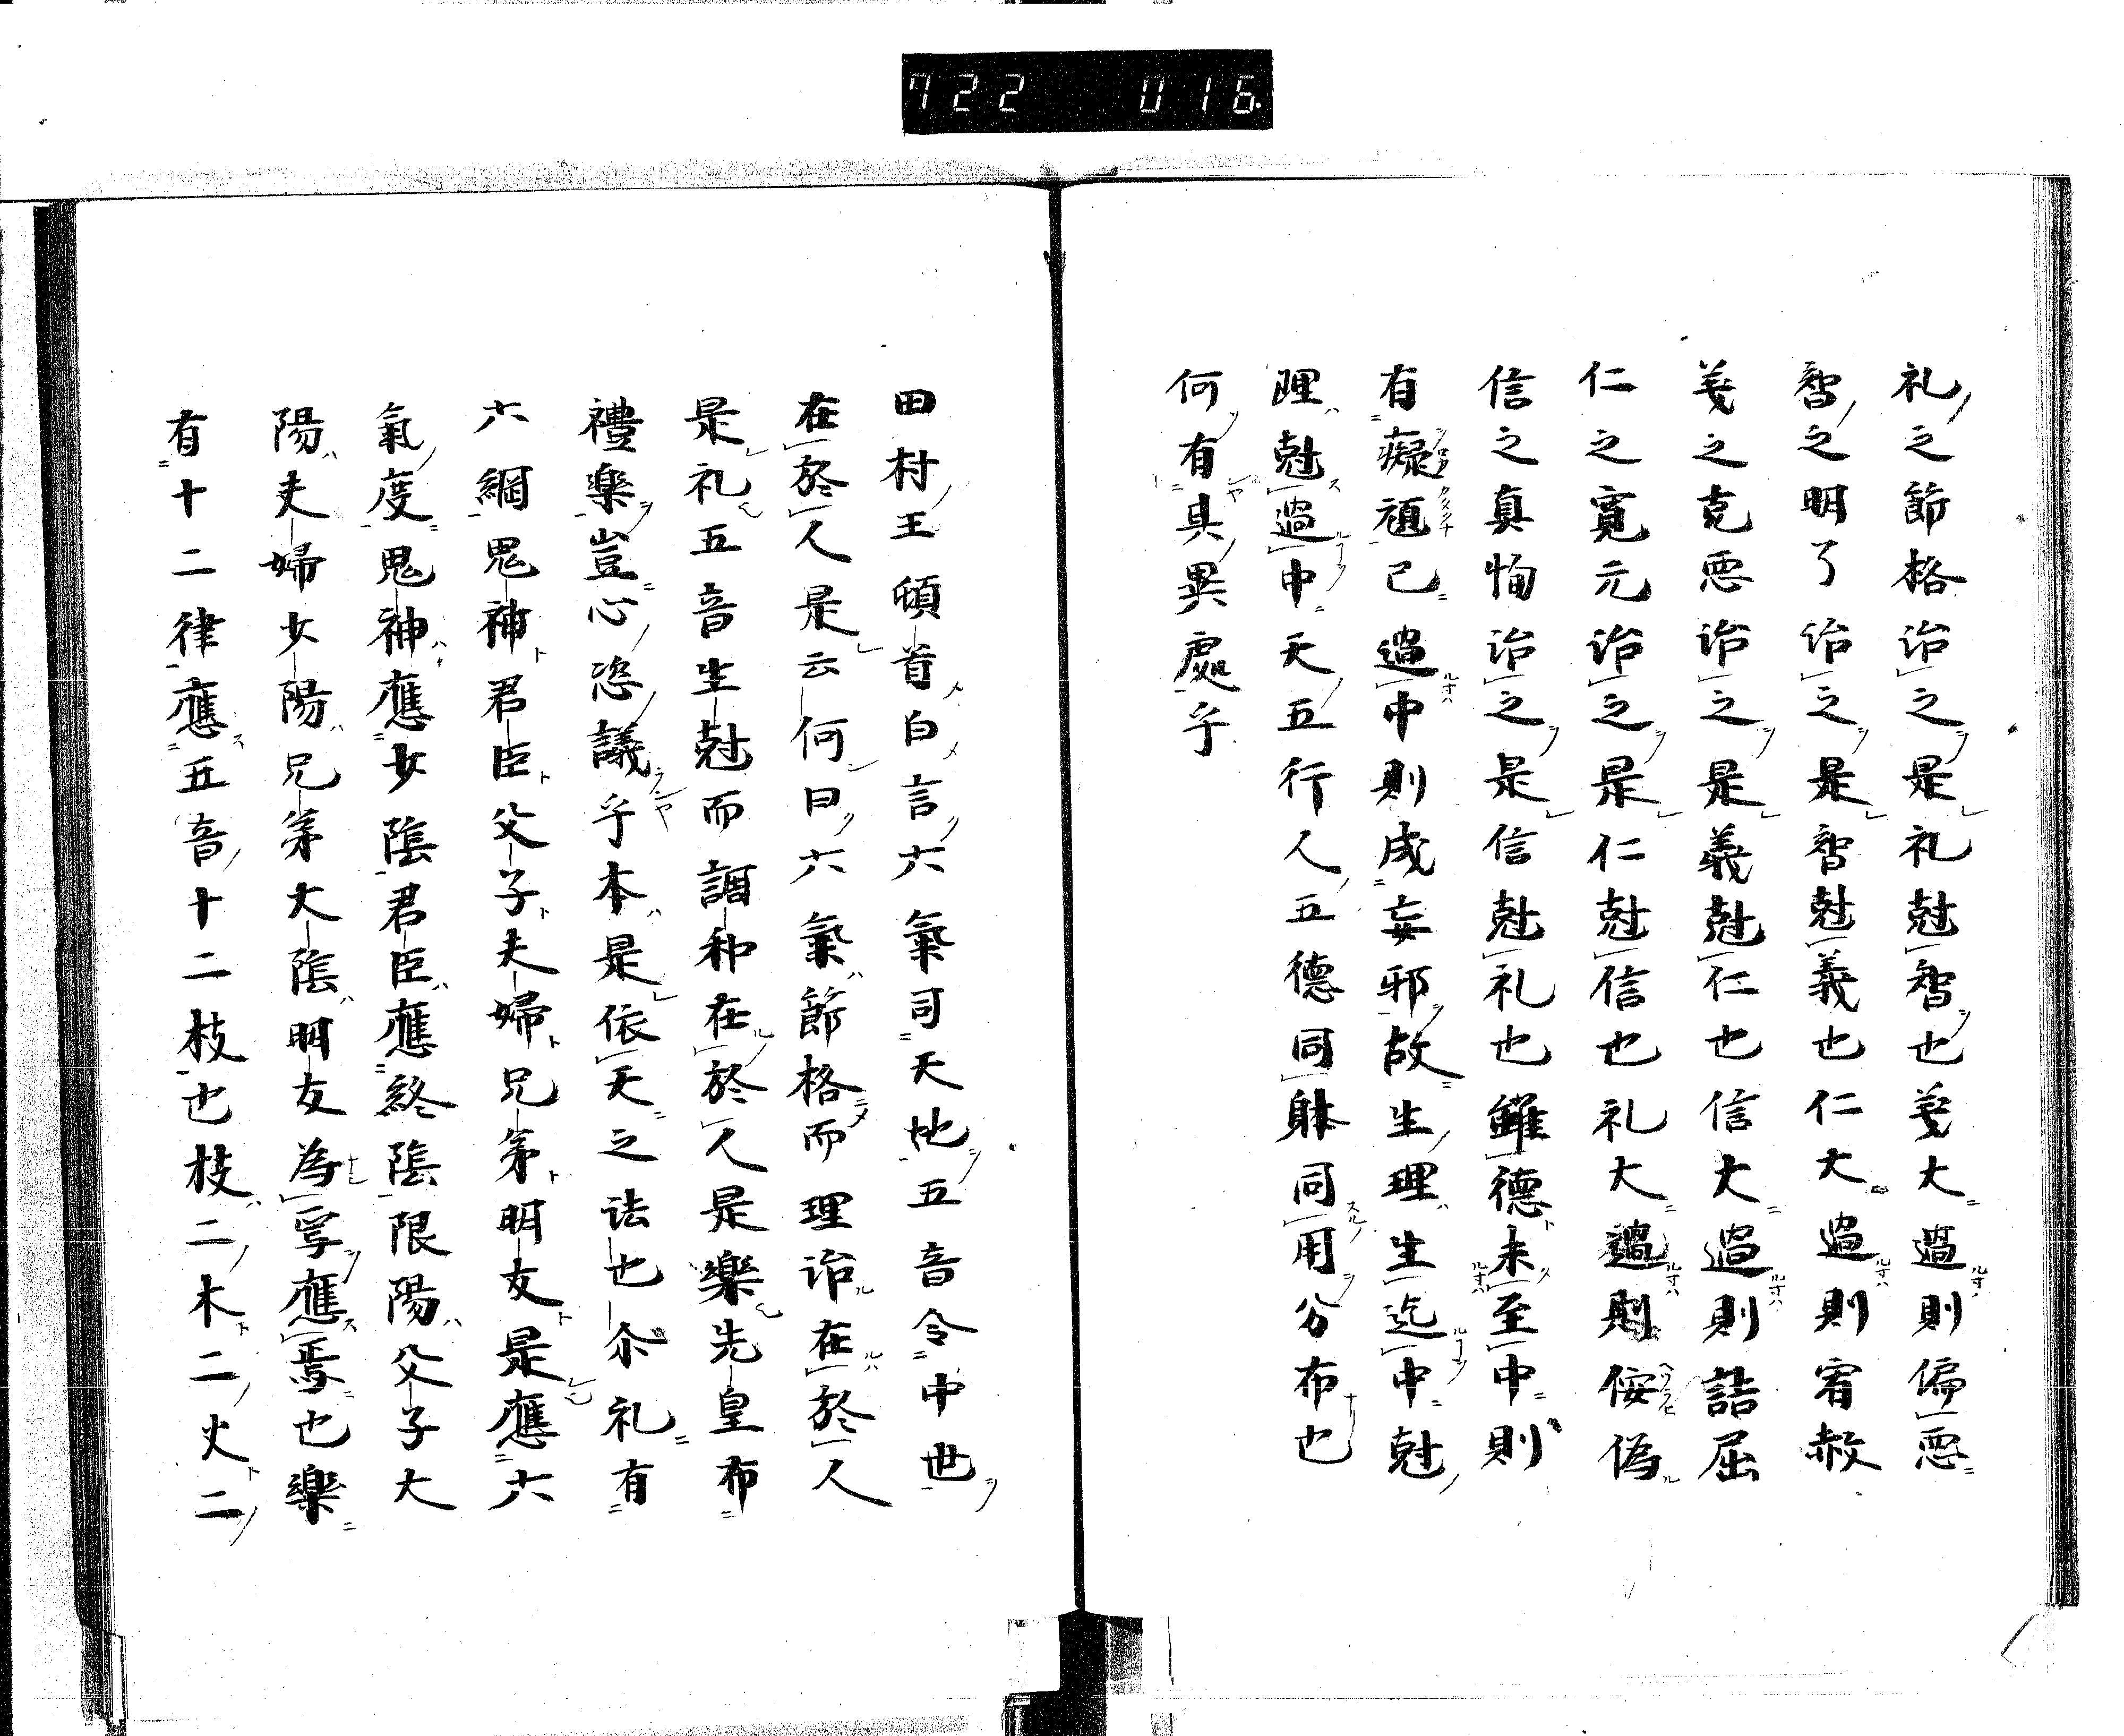 722 016
礼之節格治之是礼尅智也義大過則偏悪
智之明了治之是智尅義也仁大過則宥赦
義之克悪治之是義尅仁也信大過則詰屈
仁之寛元治之是仁尅信也礼大過則侫偽
信之真恂治之是信尅礼也雖德未至中則
有癡頑已過中則成妄邪故生理生迄中尅
理尅過中天五行人五德同躰同用分布也
何有具異處乎
田村王頓首白言六氣司天地五音令中世
在於人是云何曰六氣節格而理治在於人
是礼五音生尅而調和在於人是樂先皇布
禮樂豈心恣議乎本是依天之法也尒礼有
六綱鬼神君臣父子夫婦兄弟明友是應六
氣度鬼神應女陰君臣應終陰限陽父子大
陽夫婦女陽兄弟大陰明友為孚應焉也樂
有十二律應五音十二枝也枝二木二火二